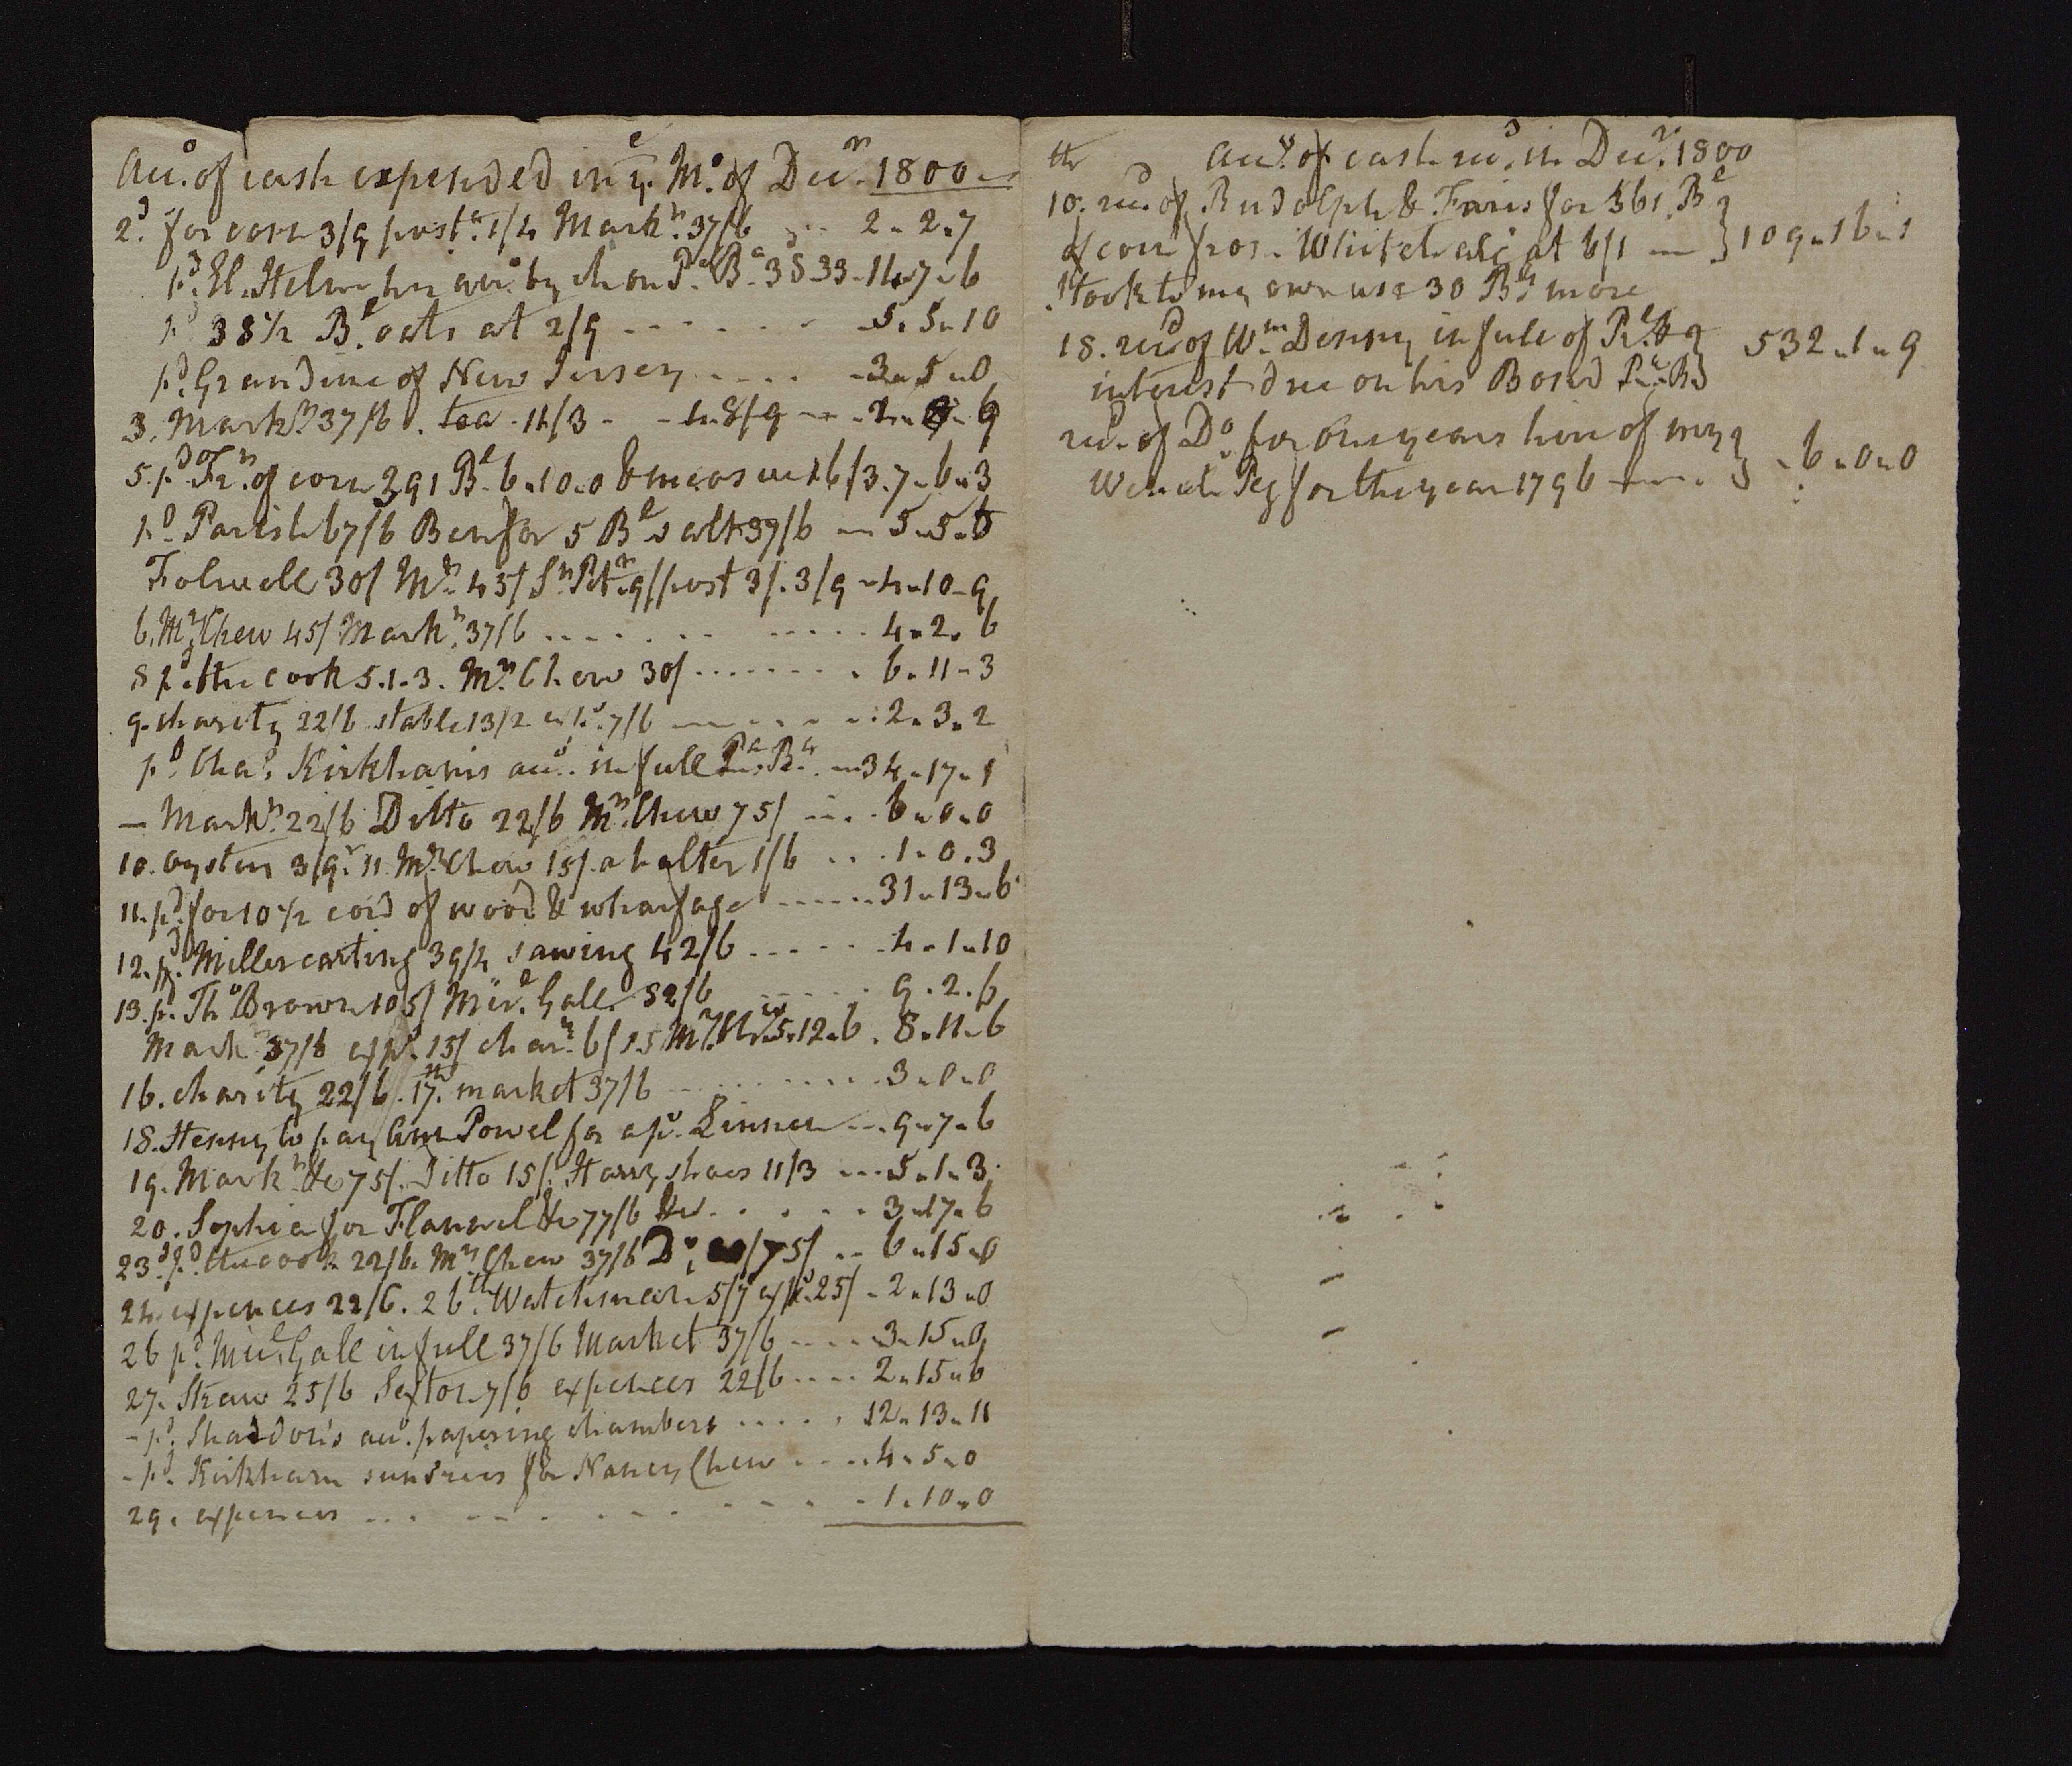 Acc.o of cash expended in y.e M.o of Dec.r 1800
2.d for corn 3/9 post.e 1/4 Mark.t 37/6 2-2-7
p.d El. Helm her acc.o by ch on P.a B.a 38-33-14-7-6
p.d 38½ B.l oats at 2/9 5-5-10
p.d Grandine of New Jersey 3-5-0
3. Mark.t 37/6. tea 11/3
5. p.d Fr.t of corn 391 B.l 6-10-0 & measure 16/3. 7-6-3
p.d Parish 67/6 Ben for 5 B.l salt 37/6 5-5-0
Folwell 30/ M.rs 45/ post 3/. 3/9 4-10-9
6. M.rs Chew 45/ Mark.t 37/6 4-2-6
8 p.d the cook 5.1.3. M.rs Chew 30/ 6-11-3
9. charity 22/6 stable 13/2 exp.s 7/6 2-3-2
p.d Cha.s Kirkhams acc.o in full P.a B.a 34-17-1
- Mark.t 22/6 Ditto 22/6 M.rs Chew 75/ 6-0-0
10. oysters 3/9. M.rs Chew 15/. a halter 1/6 1-0-3
11. p.d for 10½ cord of wood & wharfage 31-13-6
12. p.d Miller carting 39/4 sawing 42/6 4-1-10
13. p.d Th.o Brown 105/ Mic.l Gall 82/6 9-2-6
Mark.t 37/6 exp.s 15/ char.y 6/ 15 M.rs Chew 5-12-6. 8-11-6
16. charity 22/6. 17.th market 37/6 3-0-0
18. Henny to pay Powel for a p.s Linnen 9-7-6
19. Mark.t &c 75/. Ditto 15/. Harry shoes 11/3 5-1-3
20. Sophia for Flannel &c 77/6 &c 3-17-6
23.d p.d the cook 22/6. M.rs Chew 37/6 D.o 75/ 6-15-0
24. expences 22/6. 26.th Watchman 5/7 exp.s 25/ 2-13-0
26 p.d Mic.l Gall in full 37/6 Market 37/6 3-15-0
27. Straw 25/6 Sexton 7/6 expences 22/6 2-15-6
- p.d Shaddon's acc.o papering chambers 12-13-11
- p.d Kirkham sundries for Nancy Chew 4-5-0
29. expences 1-10-0
Acc.o of cash rec.d in Dec.r 1800
10.th rec.d of Rudolph & Faris for 361 B.l
of corn from Whitehall at 6/1 109-16-1
I took to my own use 30 B.ls more
18. rec.d of W.m Denny in full of Pr.l &
interest due on his Bond P.a B.d 532-1-9
rec.d of D.o for One years hire of my
Wench Peg for the year 1796 6-0-0